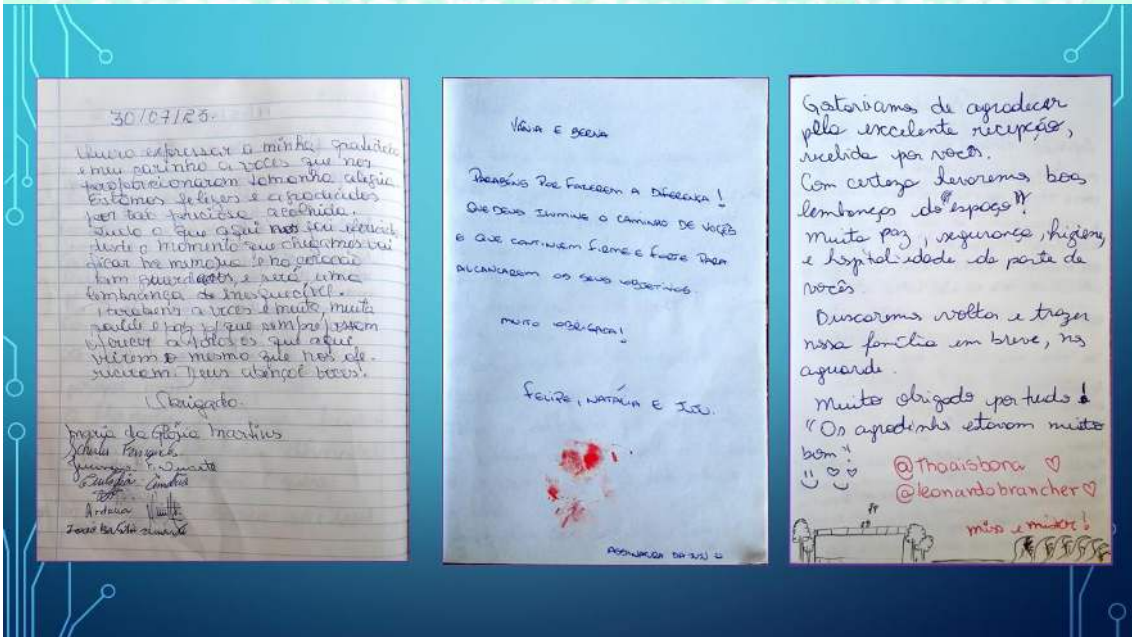 30/07/23.
Quero expressar a minha gratidão
e meu carinho a voces que nos
proporcionaram tamanha alegria
Estamos felizes e agradecidos
por tal preciosa acolhida.
Tudo o que aqui nos foi
desde o momento que chegamos vai
ficar na memoria e no coração
bem e será uma
lembrança de inesquecível.
Parabens a voces e muita, muita
saúde e paz p/ que sempre possam
oferecer a todos os que aqui
virem o mesmo que nos ofe-
receram. Deus abençoe voces!
Obrigado.
Maria da Glória Martins
VÂNIA E BERNA
PARABÉNS POR FAZEREM A DIFERENÇA!
QUE DEUS ILUMINE O CAMINHO DE VOCÊS
E QUE CONTINUEM FIRME E FORTE PARA
ALCANÇAREM OS SEUS OBJETIVOS.
MUITO OBRIGADA!
FELIPE, NATÁLIA E JUJU.
ASSINATURA DA JUJU
Gostaríamos de agradecer
pela excelente recepção,
recebida por vocês.
Com certeza levaremos boas
lembranças do "espaço".
Muita paz, segurança, higiene,
e hospitalidade da parte de
vocês.
Buscaremos voltar e trazer
nossa família em breve, nos
aguarde.
Muito obrigado por tudo!
"Os agradinhos estavam muito
bom"
@thoaisbona
@leonardobrancher
miss e mister!